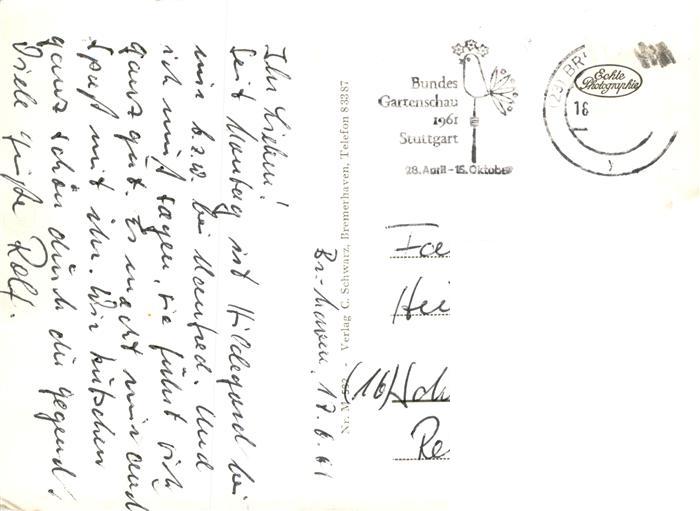 Ihr Lieben!
Seit Montag ist Hildegard bei
mir b.z.w. bei Manfred. Und
ich muß sagen, sie führt sich
ganz gut. Es macht mir auch
Spaß mit ihr. Wir kutschen
ganz schön durch die Gegend.
Viele Grüße Rolf.
17.6.61
Nr. M - Verlag C. Schwarz, Bremerhaven, Telefon 83387
Bundes
Gartenschau
1961
Stuttgart
28. April - 15. Oktober
(23) BR
18
Echte
Photographie
Hei
(16)
Re